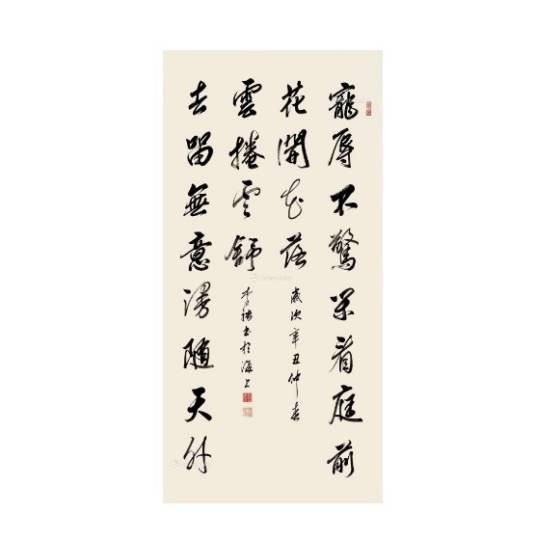 寵辱不驚閑看庭前
花開花落
歲次辛丑仲春
去留無意漫隨天外
雲捲雲舒
李 書於海上